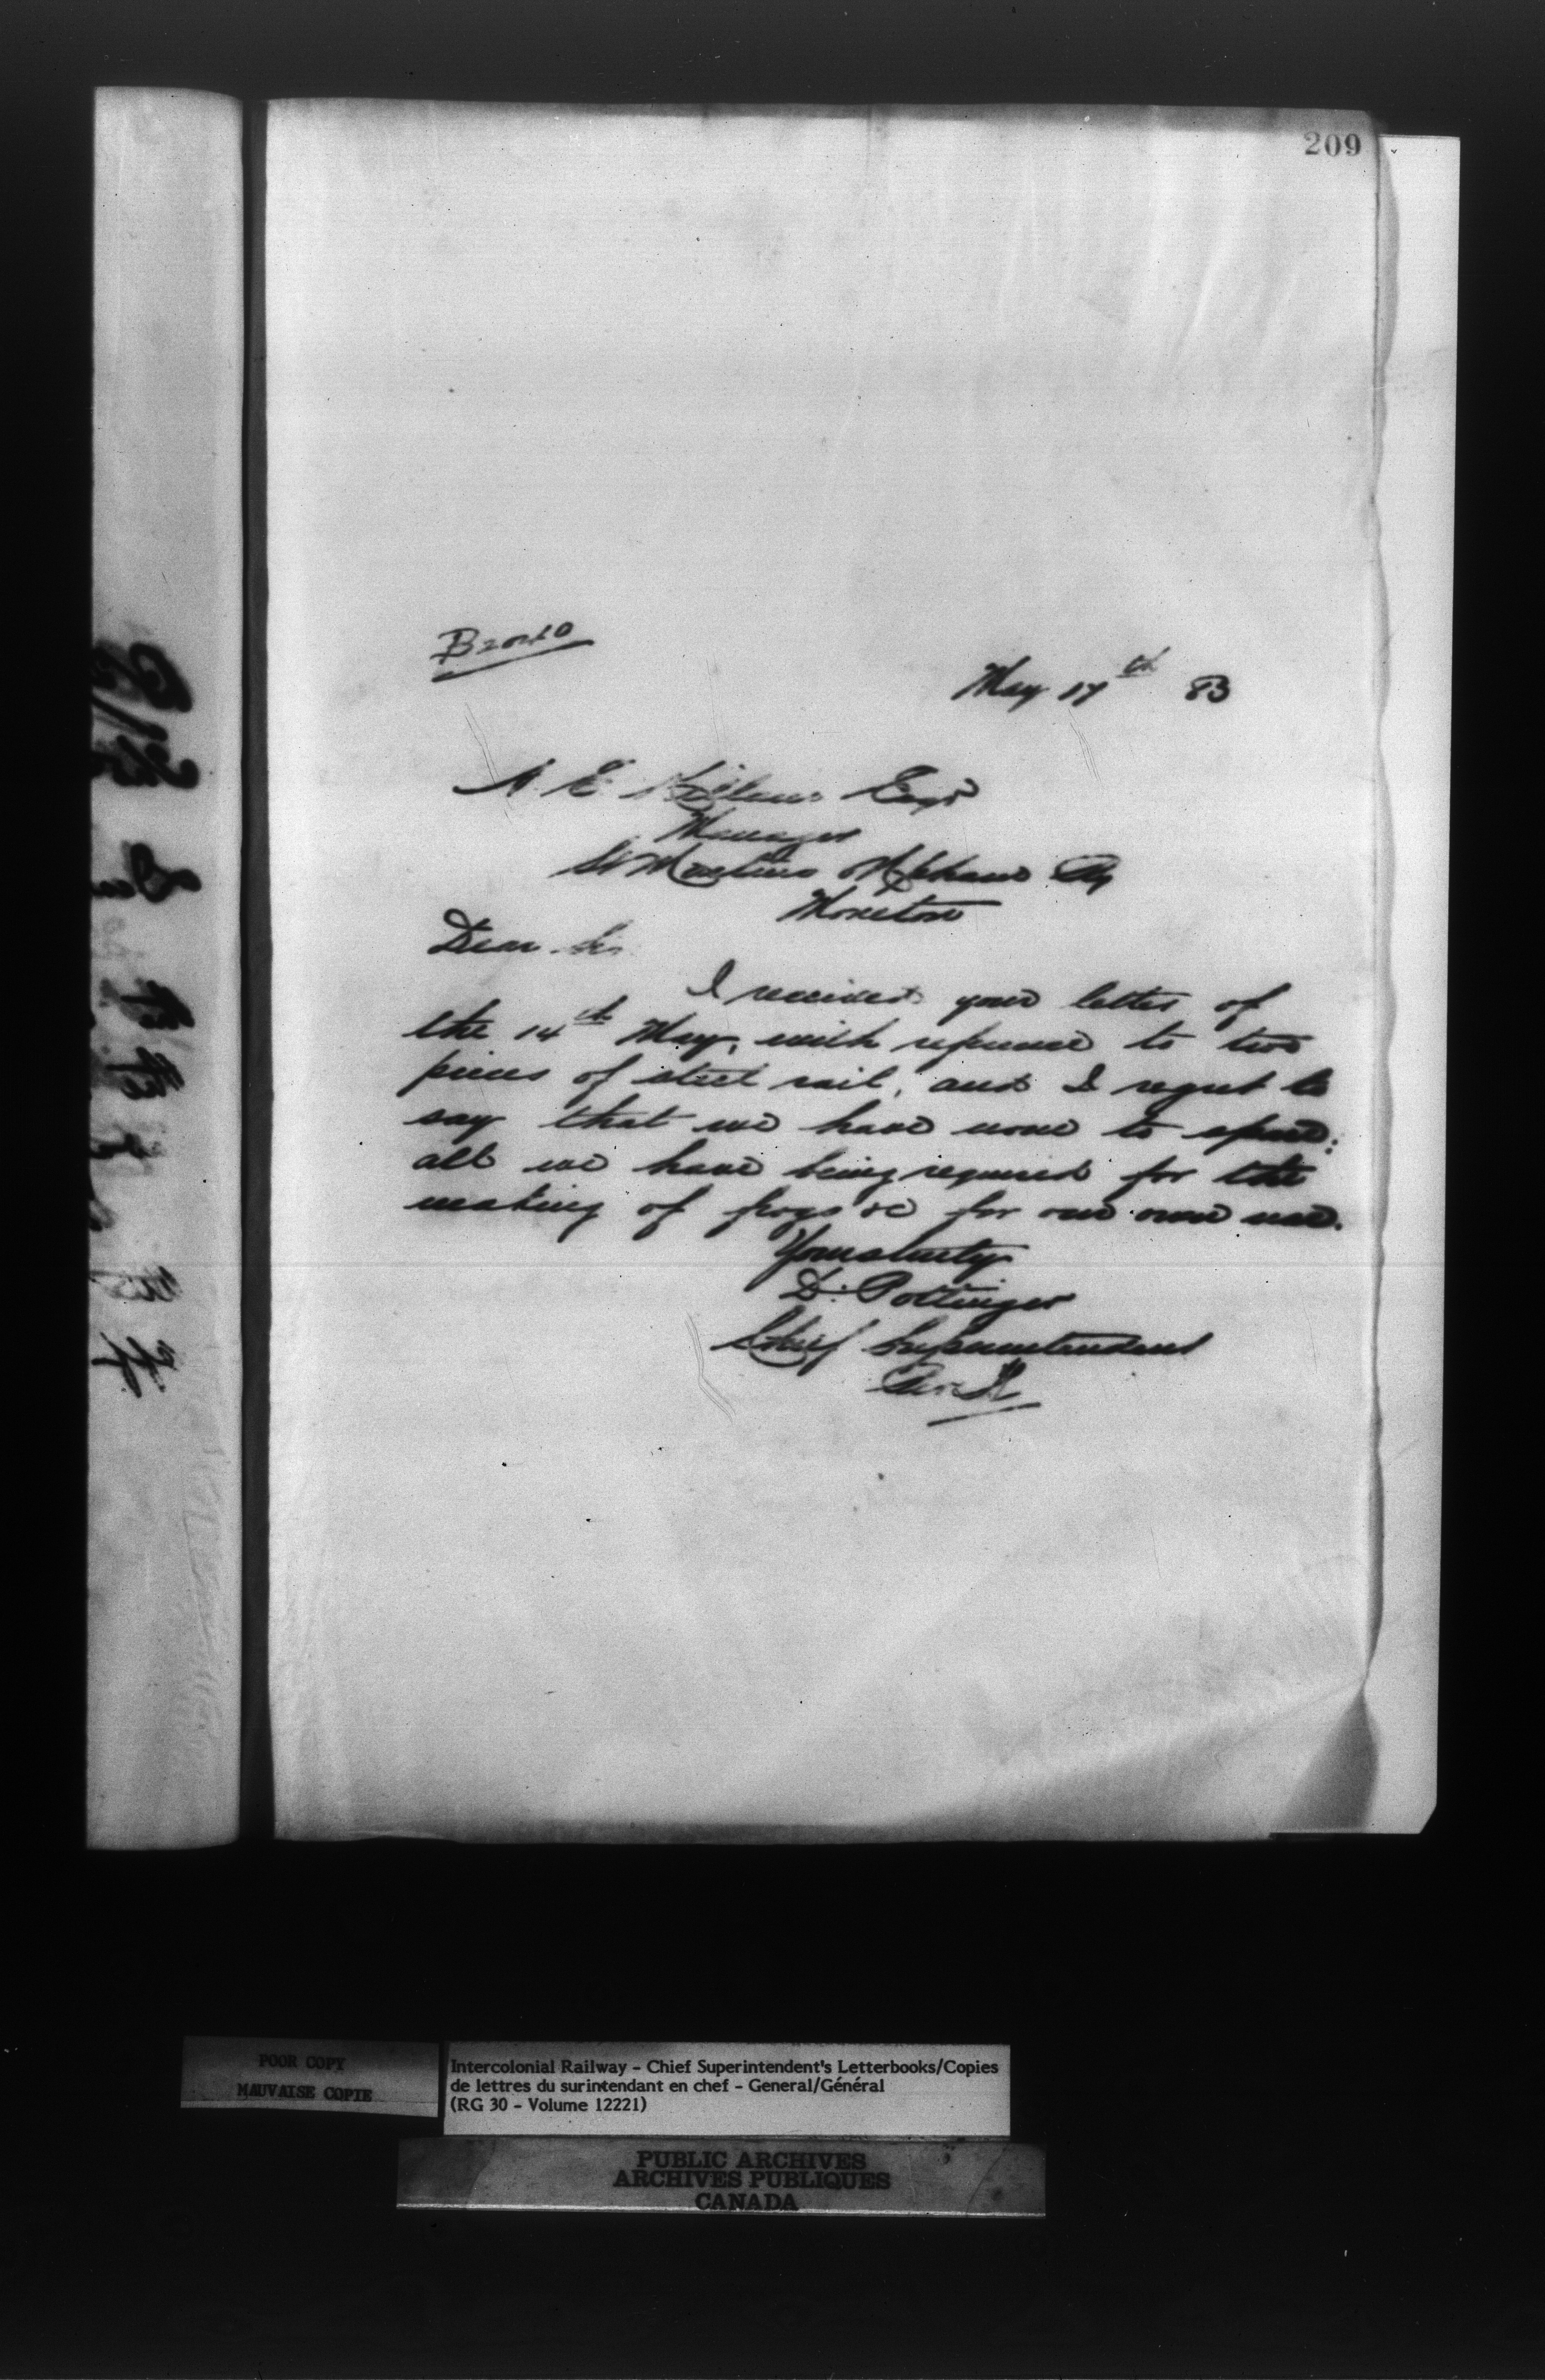 209
May 17th 83
A. E. Killam Esqr
Manager
St Martins & Upham Ry
Moncton
Dear Sir
I received your letter of
the 14th May, with reference to two
pieces of steel rail, and I regret to
say that we have none to spare;
all we have being required for the
making of frogs &c for our own use.
Yours truly
D. Pottinger
Chief Superintendent
POOR COPY
MAUVAISE COPIE
Intercolonial Railway - Chief Superintendent's Letterbooks/Copies
de lettres du surintendant en chef - General/Général
(RG 30 - Volume 12221)
PUBLIC ARCHIVES
ARCHIVES PUBLIQUES
CANADA